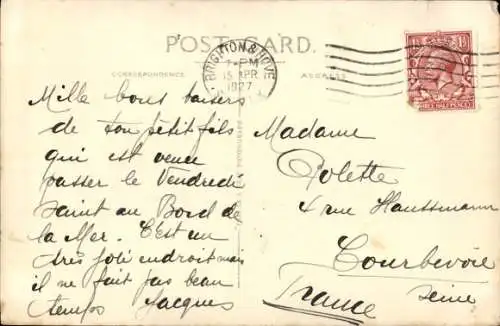 POST CARD.
CORRESPONDENCE
ADDRESS
BRIGHTON & HOVE
7 - PM
15 APR
1927
THREE HALF PENCE
Mille bons baisers
de ton petit fils
qui est venu
passer le Vendredi
Saint au Bord de
la Mer. C'est un
très joli endroit mais
il ne fait pas beau
temps Jacques
Madame
Polette
4 rue Haussmann
Courbevoie
Seine
France